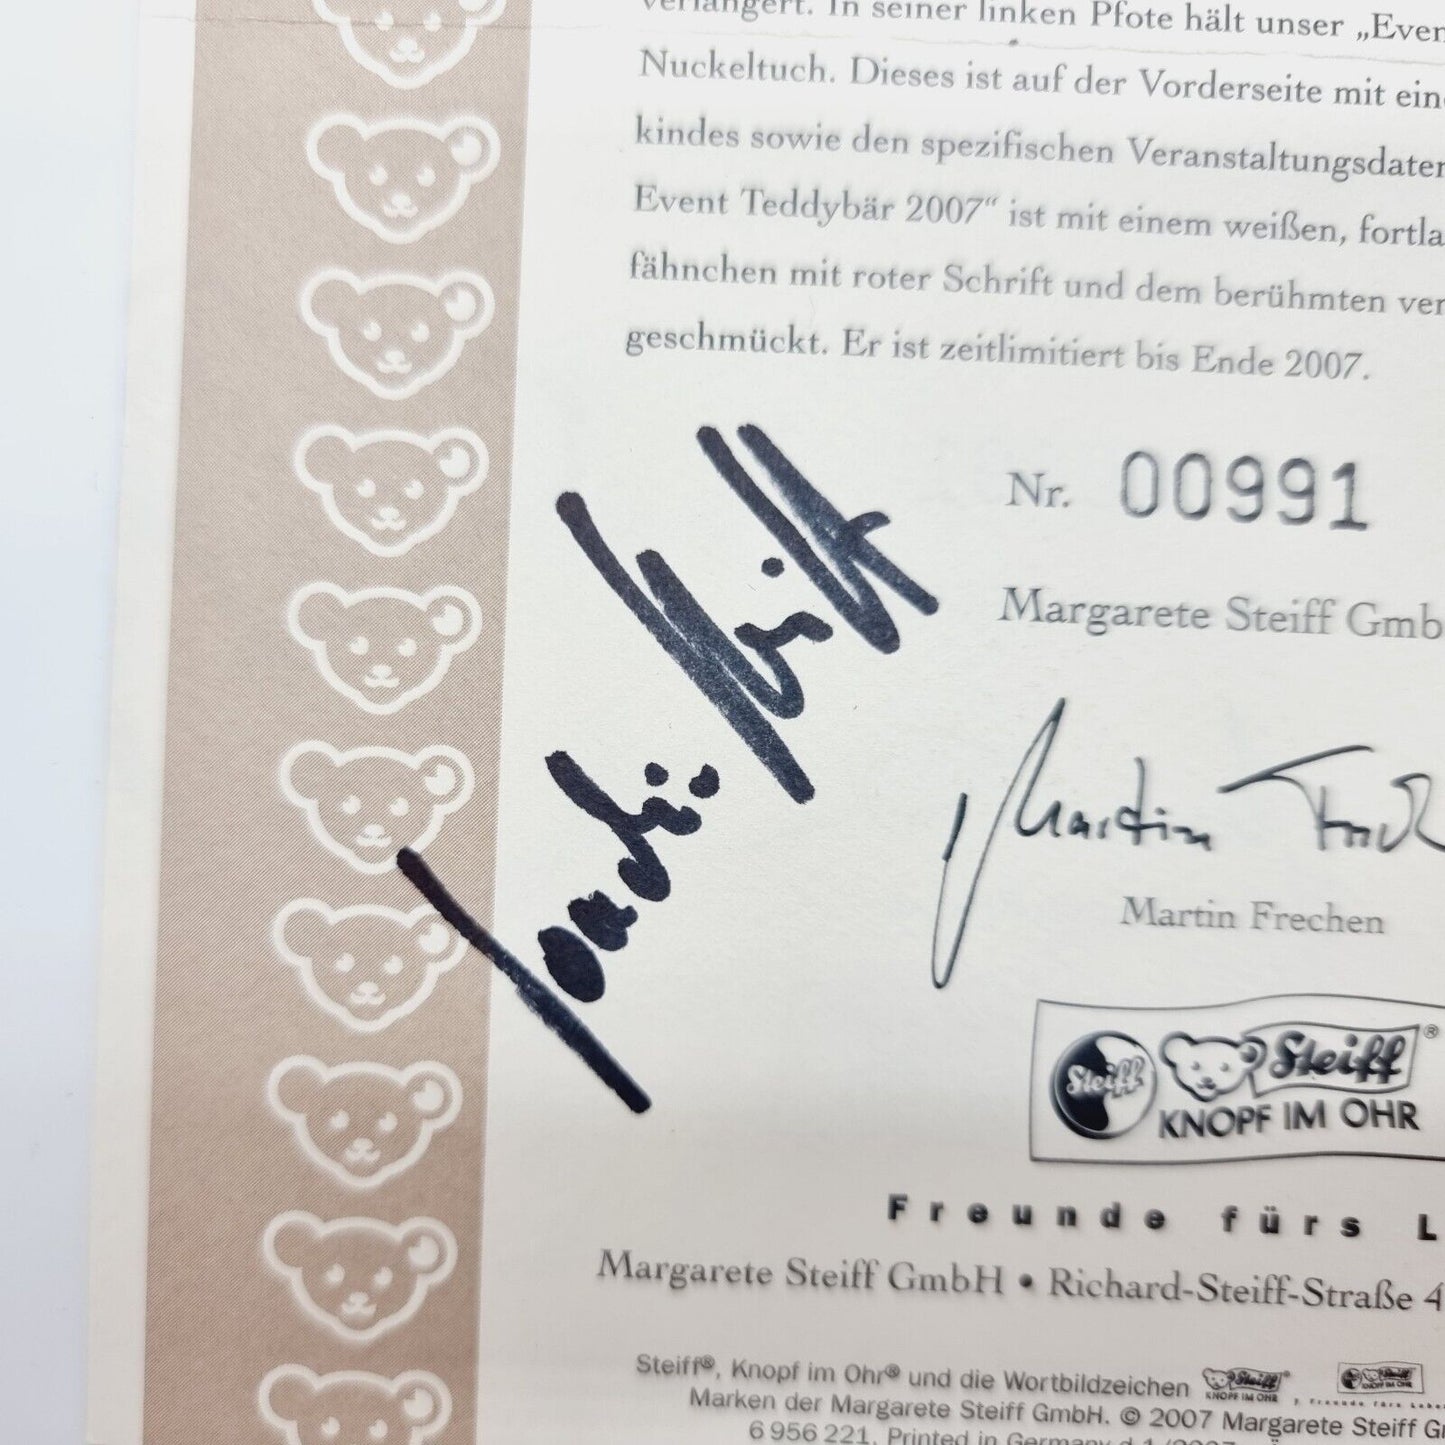 verlängert. In seiner linken Pfote hält unser „Even
Nuckeltuch. Dieses ist auf der Vorderseite mit ein
kindes sowie den spezifischen Veranstaltungsdaten
Event Teddybär 2007“ ist mit einem weißen, fortla
fähnchen mit roter Schrift und dem berühmten ver
geschmückt. Er ist zeitlimitiert bis Ende 2007.
Nr. 00991
Margarete Steiff Gmb
Martin
Martin Frechen
Steiff
Steiff®
KNOPF IM OHR
Freunde fürs L
Margarete Steiff GmbH • Richard-Steiff-Straße 4
Steiff®, Knopf im Ohr® und die Wortbildzeichen Steiff® KNOPF IM OHR ,
Marken der Margarete Steiff GmbH. © 2007 Margarete Steiff G
6 956 221. Printed in Germany